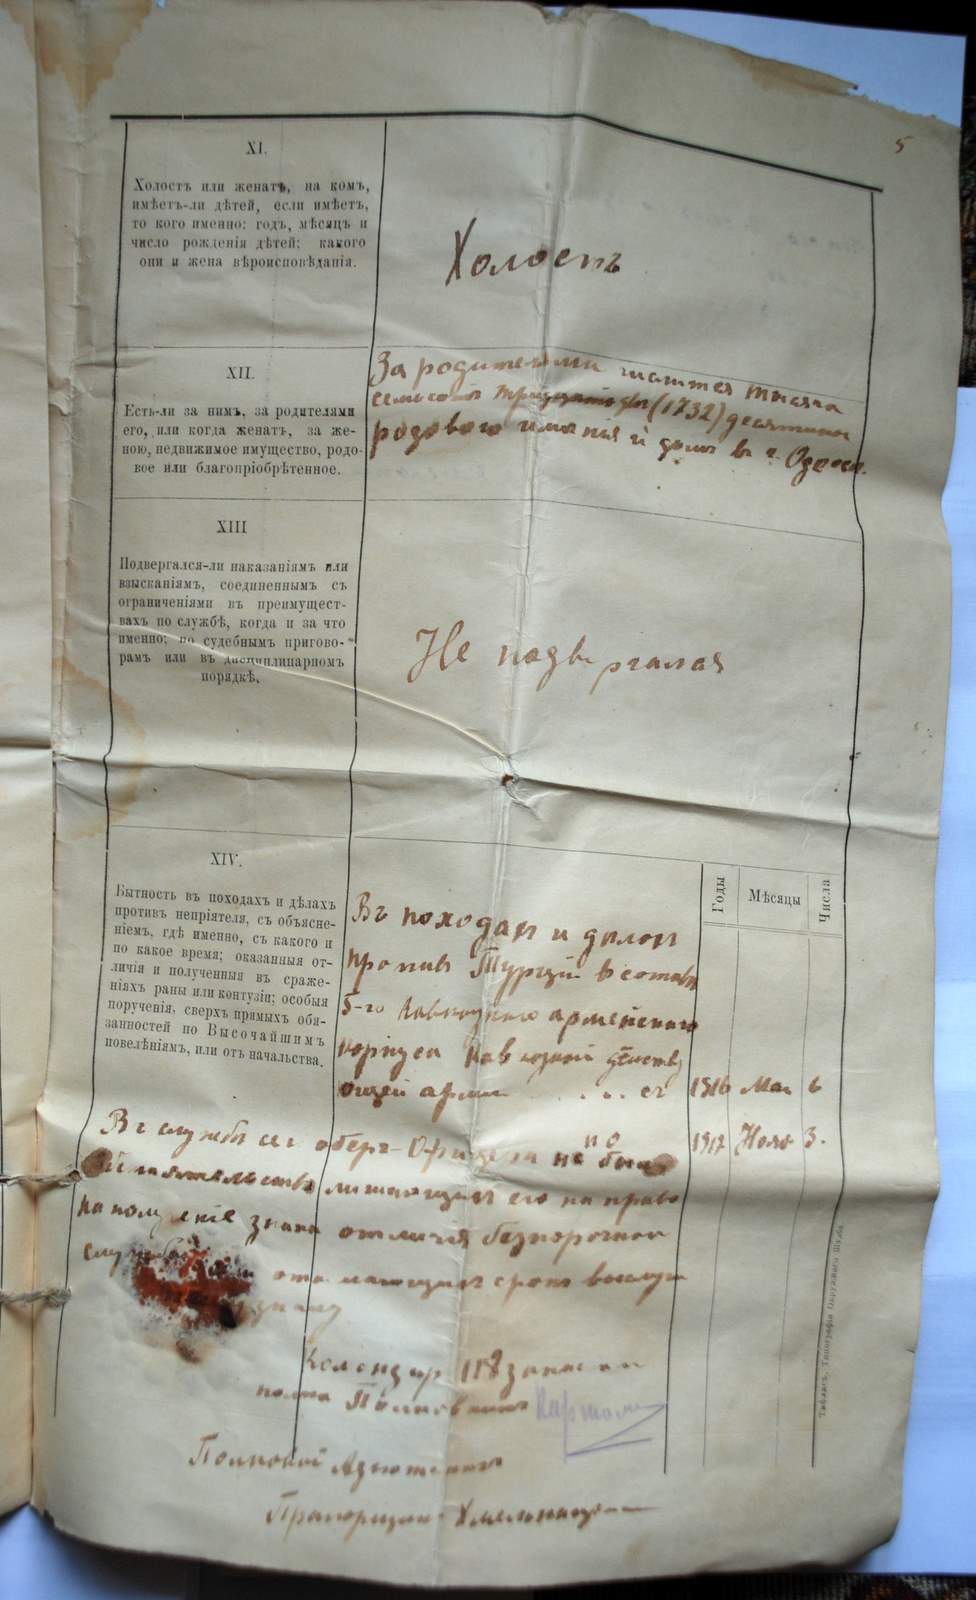 5
XI.
Холостъ или женатъ, на комъ,
имѣетъ-ли дѣтей, если имѣетъ,
то кого именно: годъ, мѣсяцъ и
число рожденія дѣтей; какого
они и жена вѣроисповѣданія.
Холостъ
XII.
Есть-ли за нимъ, за родителями
его, или когда женатъ, за же-
ною, недвижимое имущество, родо-
вое или благопріобрѣтенное.
За родителями числится тысяча
семьсотъ тридцать два (1732) десятины
родового имѣнья и домъ въ г. Одессѣ.
XIII
Подвергался-ли наказаніямъ или
взысканіямъ, соединеннымъ съ
ограниченіями въ преимущест-
вахъ по службѣ, когда и за что
именно; по судебнымъ пригово-
рамъ или въ дисциплинарномъ
порядкѣ,
Не подвергался
XIV.
Бытность въ походахъ и дѣлахъ
противъ непріятеля, съ объясне-
ніемъ, гдѣ именно, съ какого и
по какое время; оказанныя от-
личія и полученныя въ сраже-
ніяхъ раны или контузіи; особыя
порученія, сверхъ прямыхъ обя-
занностей по Высочайшимъ
повелѣніямъ, или отъ начальства.
Годы
Мѣсяцы
Числа
Въ походахъ и дѣлахъ
противъ Турціи в составѣ
5-го Кавказскаго армейскаго
корпуса Кавказской дѣйству
ющей арміи . . . . съ 1916 Мая 6
по 1917 Нояб 3.
Въ службѣ сего оберъ-Офицера не было
обстоятельствъ лишающихъ его на право
на полученіе знака отличія безпорочной
службы отдаляющихъ срокъ выслуги
къ знаку
Командир 118 запасн
полка Полковникъ
Полковой Адъютантъ
Прапорщикъ Хмельницкій
Тифлисъ, Типографія Окружного Штаба